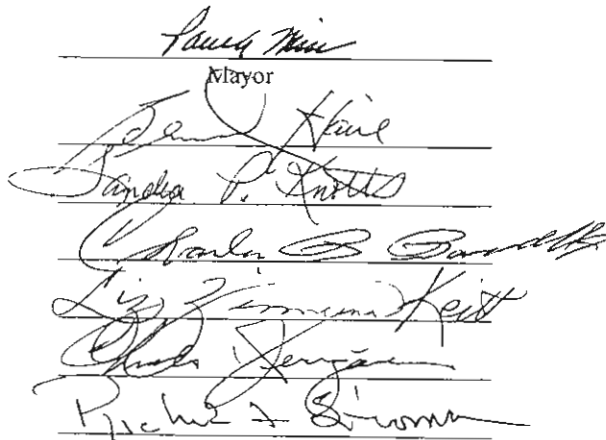 Mayor
Haire
Sandra P. Knotts
Charles B. Barnwell Jr.
Liz Zimmerman Keitt
Charles Jernigan
Richard F. Stroman